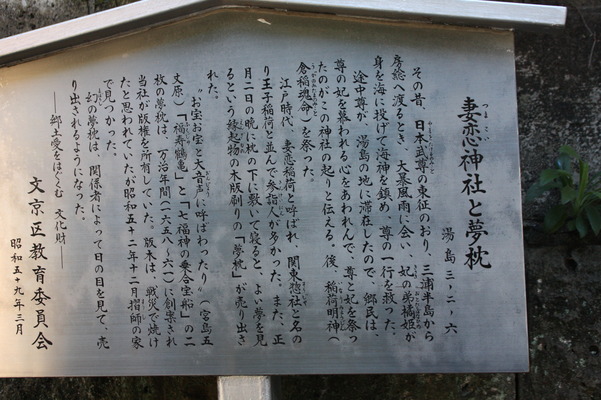 妻恋神社と夢枕
湯島三-二-六
その昔、日本武尊の東征のおり、三浦半島から
房総へ渡るとき、大暴風雨に会い、妃の弟橘姫が
身を海に投げて海神を鎮め、尊の一行を救った。
途中尊が、湯島の地に滞在したので、郷民は、
尊の妃を慕われる心をあわれんで、尊と妃を祭っ
たのがこの神社の起りと伝える。後、稲荷明神(
倉稲魂命)を祭った。
江戸時代、妻恋稲荷と呼ばれ、関東惣社と名の
り王子稲荷と並んで参詣人が多かった。また、正
月二日の晩に枕の下に敷いて寝ると、よい夢を見
るという縁起物の木版刷りの「夢枕」が売り出さ
れた。
“お宝お宝と大音声に呼ばわったり”(宮島五
丈原)「福寿鶴亀」と「七福神の乗合宝船」の二
枚の夢枕は、万治年間(一六五八~六一)に創案され
当社が版権を所有していた。版木は、戦災で焼け
たと思われていたが昭和五十二年十二月摺師の家
で見つかった。
幻の夢枕は、関係者によって日の目を見て、売
り出されるようになった。
―郷土愛をはぐくむ 文化財―
文京区教育委員会
昭和五十九年三月